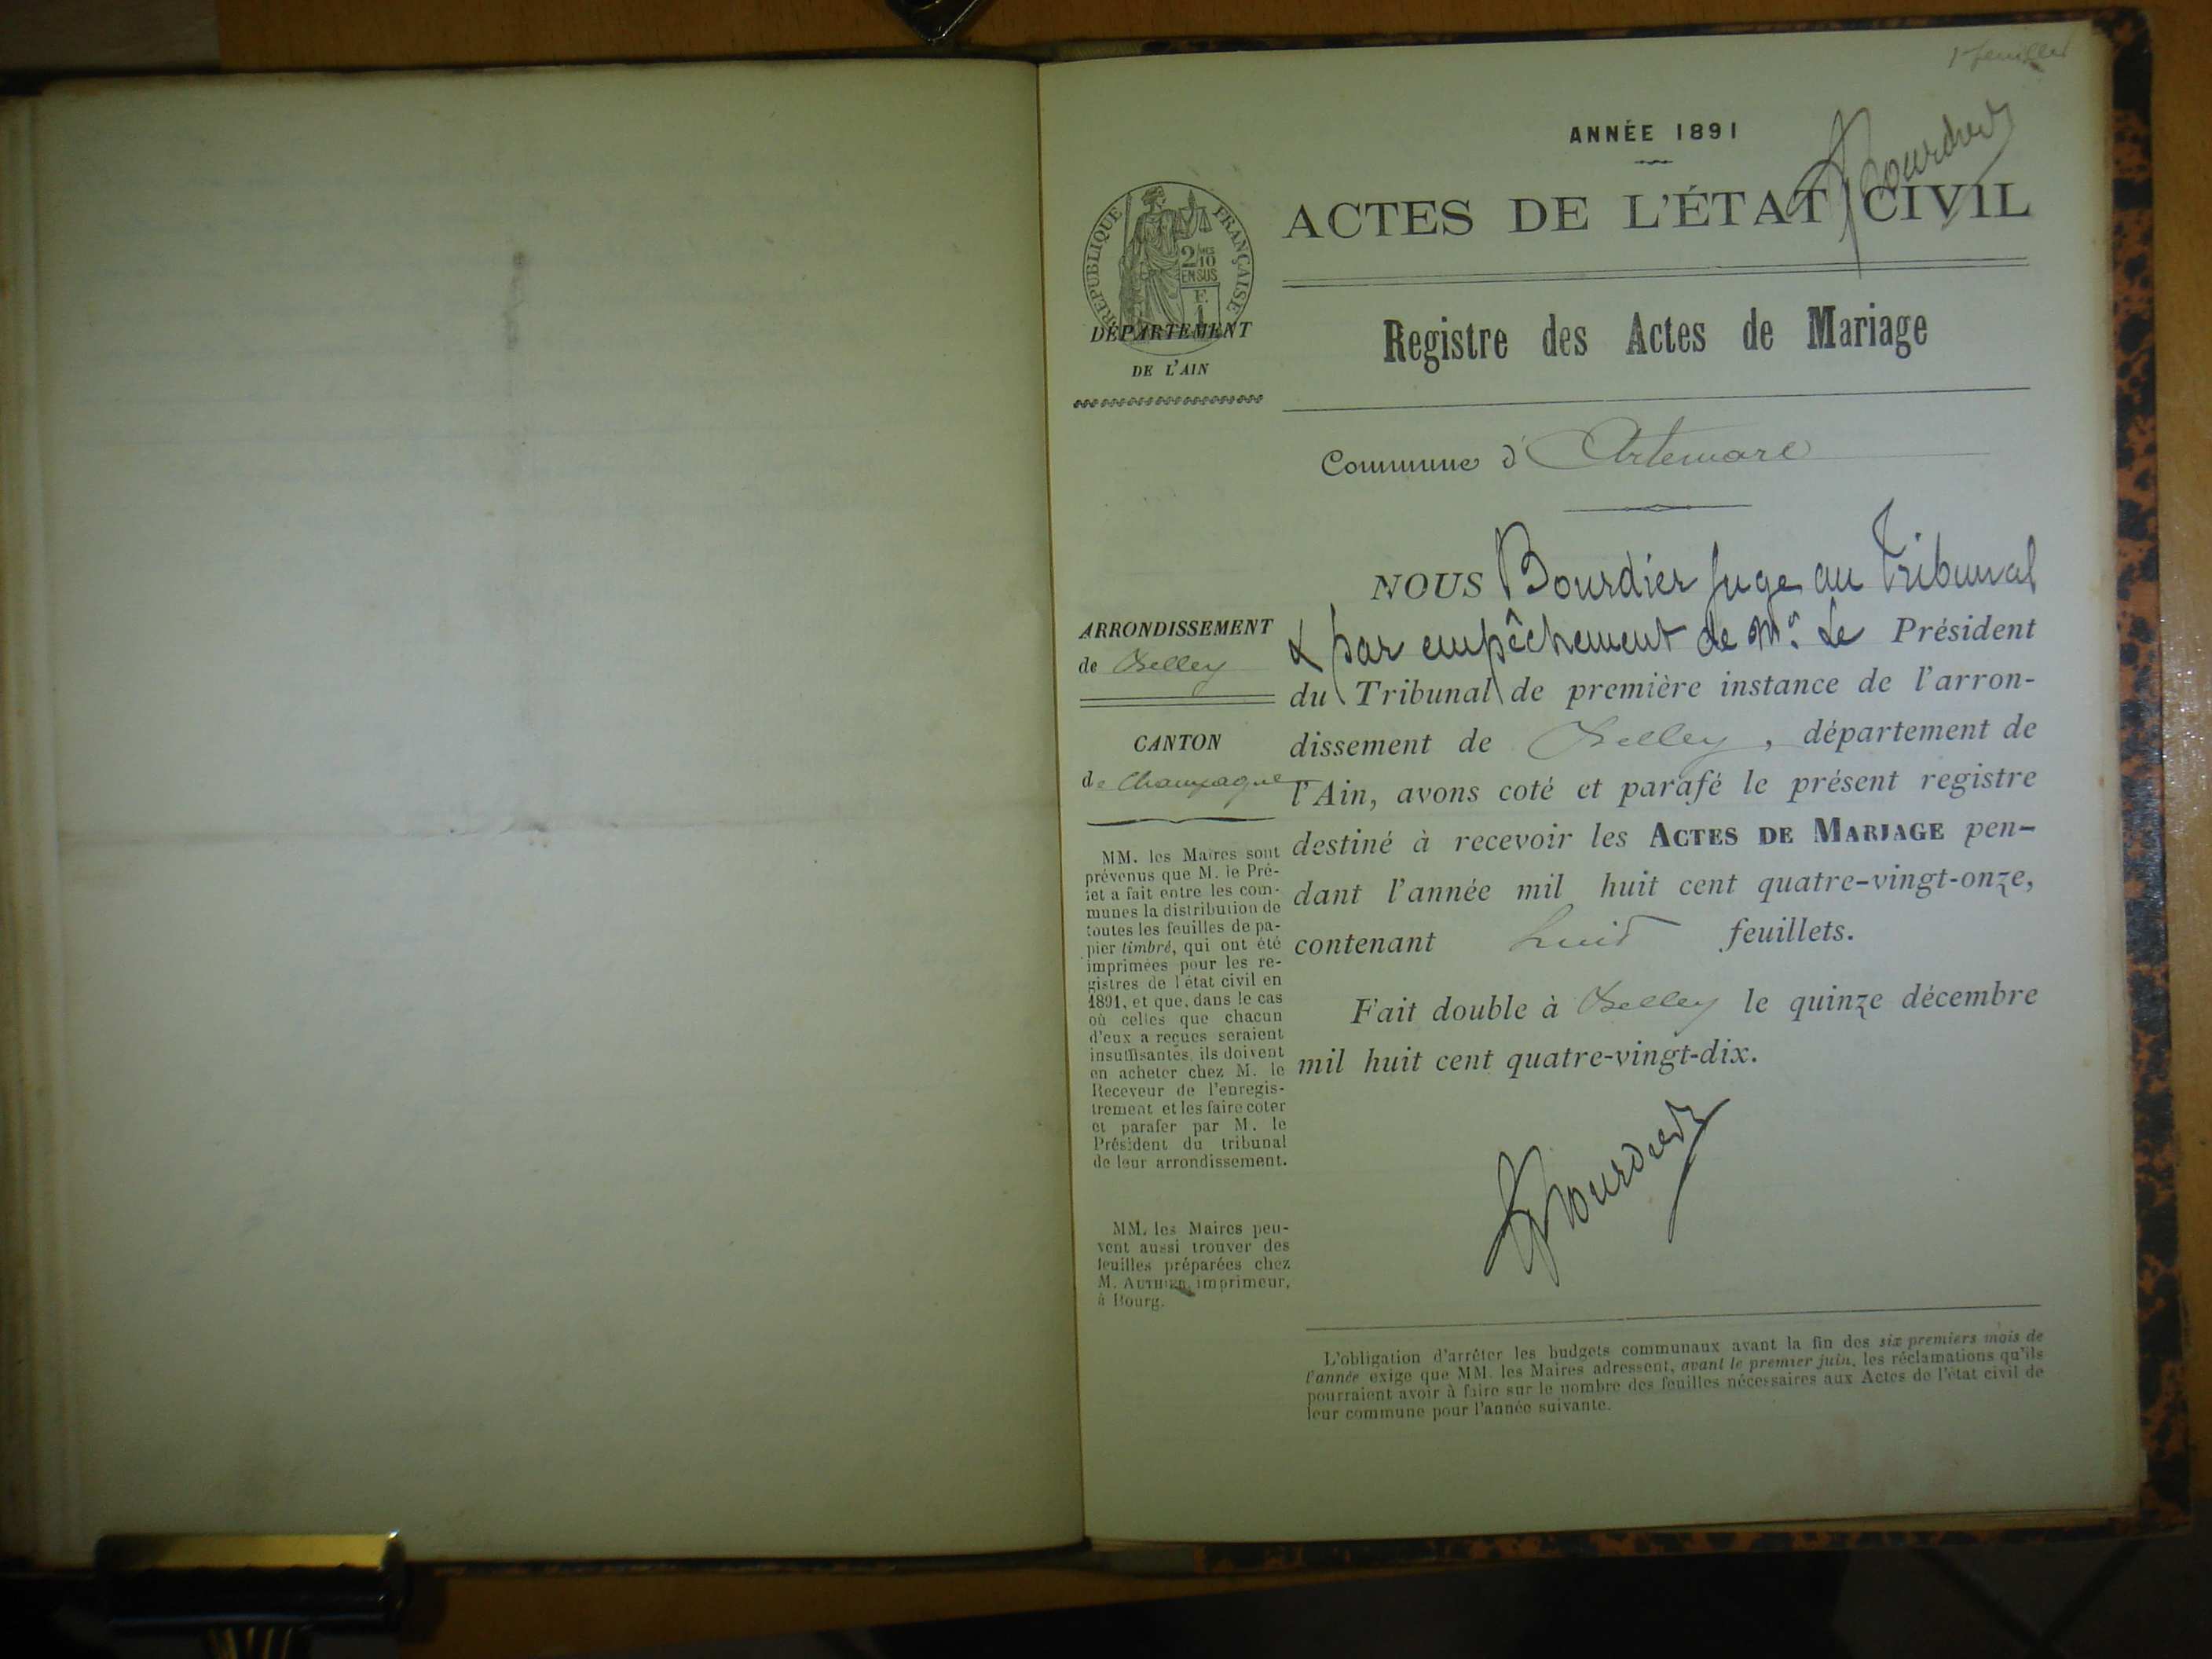 1er feuillet
ANNÉE 1891
Bourdier
ACTES DE L'ÉTAT CIVIL
RÉPUBLIQUE FRANÇAISE
2/10
EN SUS
F.
1
DÉPARTEMENT
DE L'AIN
Registre des Actes de Mariage
Commune d'Artemare
ARRONDISSEMENT
de Belley
CANTON
de Champagne
MM. les Maires sont
prévenus que M. le Pré-
fet a fait entre les com-
munes la distribution de
toutes les feuilles de pa-
pier timbré, qui ont été
imprimées pour les re-
gistres de l'état civil en
1891, et que, dans le cas
où celles que chacun
d'eux a reçues seraient
insuffisantes, ils doivent
en acheter chez M. le
Receveur de l'enregis-
trement et les faire coter
et parafer par M. le
Président du tribunal
de leur arrondissement.
MM. les Maires peu-
vent aussi trouver des
feuilles préparées chez
M. AUTHIER, imprimeur,
à Bourg.
NOUS Bourdier Juge au Tribunal
& par empêchement de Mr. Le Président
du Tribunal de première instance de l'arron-
dissement de Belley, département de
l'Ain, avons coté et parafé le présent registre
destiné à recevoir les ACTES DE MARIAGE pen-
dant l'année mil huit cent quatre-vingt-onze,
contenant huit feuillets.
Fait double à Belley le quinze décembre
mil huit cent quatre-vingt-dix.
Bourdier
L'obligation d'arrêter les budgets communaux avant la fin des six premiers mois de
l'année exige que MM. les Maires adressent, avant le premier juin, les réclamations qu'ils
pourraient avoir à faire sur le nombre des feuilles nécessaires aux Actes de l'état civil de
leur commune pour l'année suivante.